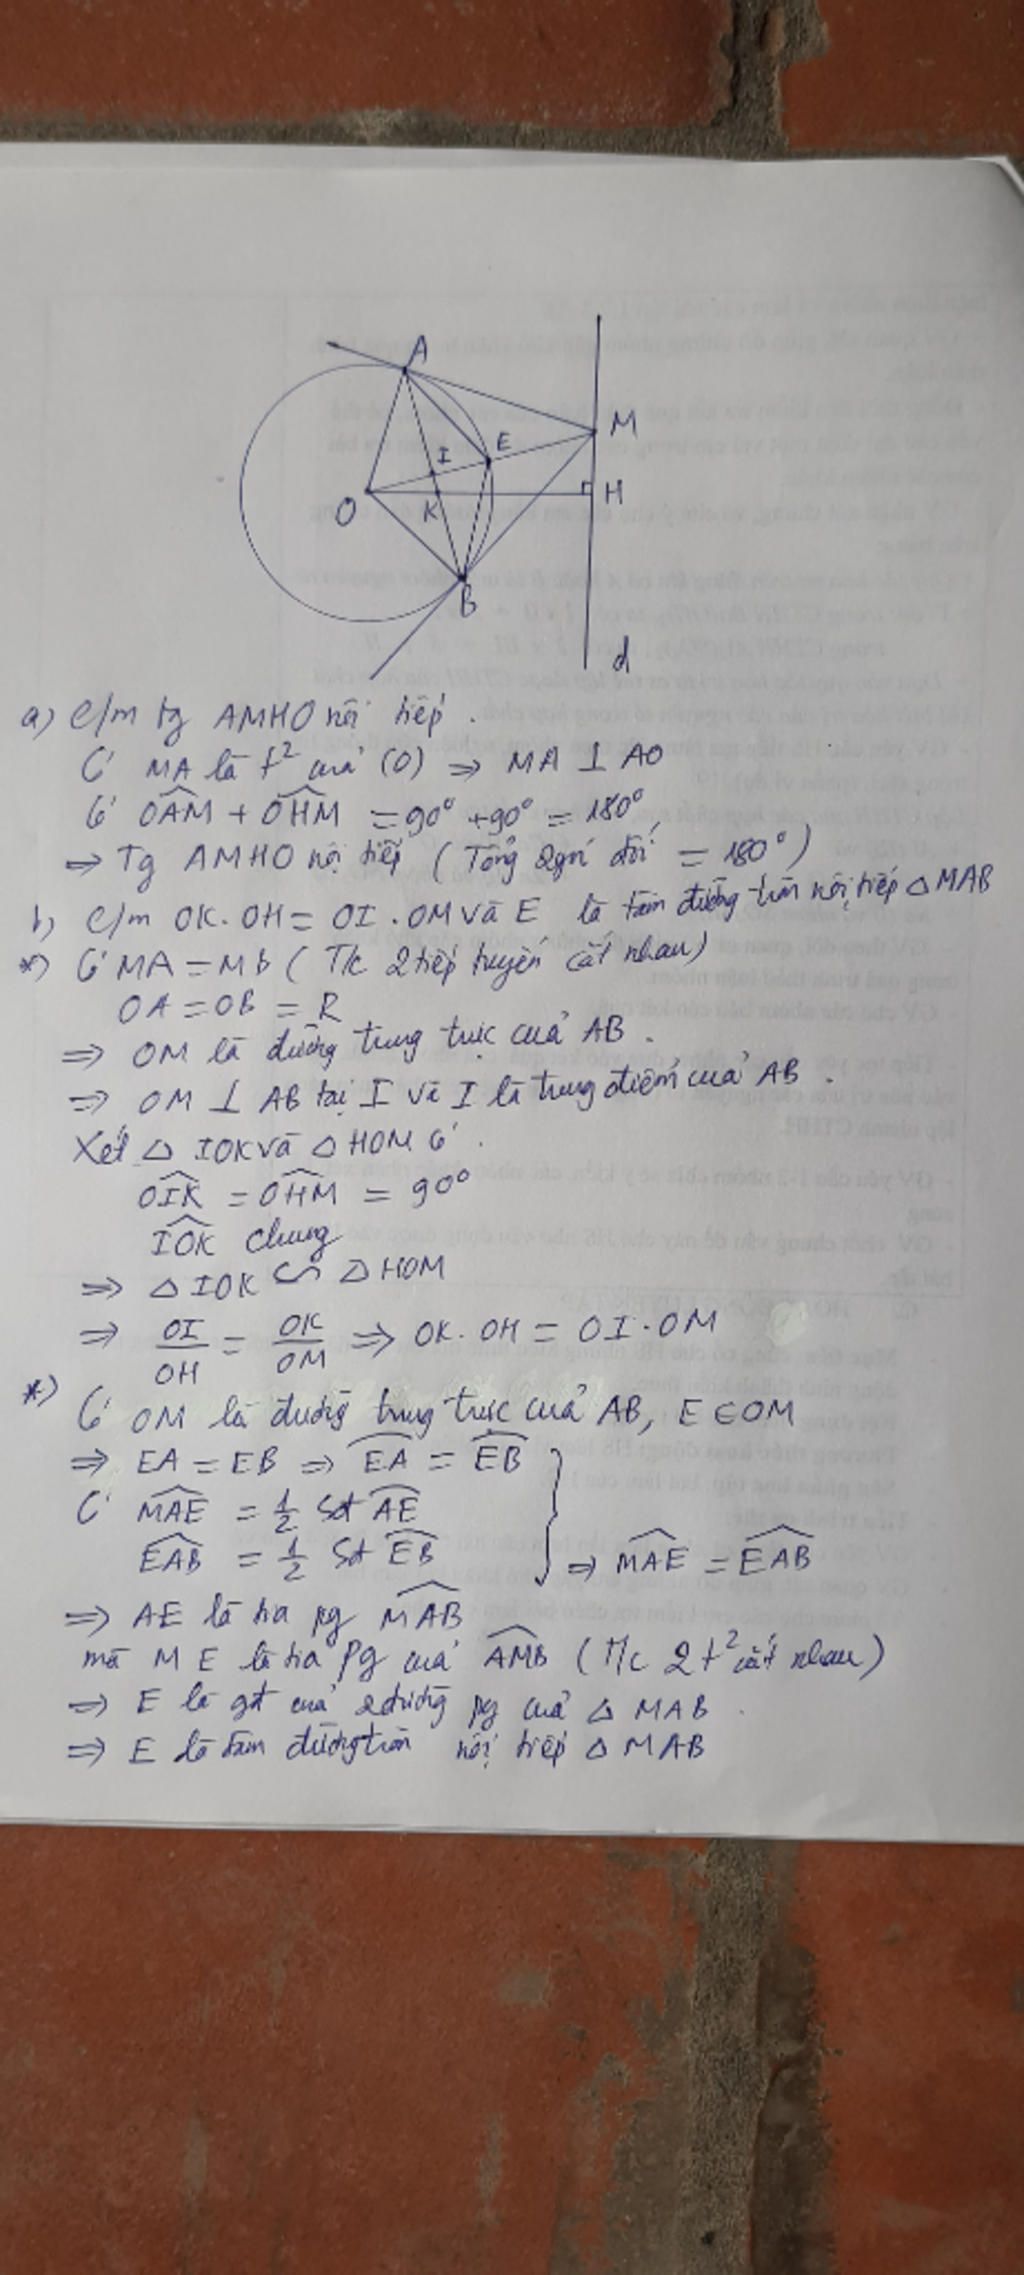 A
E
M
I
O
K
H
B
d
a) C/m tg AMHO nội tiếp.
Có MA là t² của (O) ⇒ MA ⊥ AO
Có \widehat{OAM} + \widehat{OHM} = 90° + 90° = 180°
⇒ Tg AMHO nội tiếp (Tổng 2 góc đối = 180°)
b) C/m OK.OH = OI.OM và E là tâm đường tròn nội tiếp △MAB
*) Có MA = MB (T/c 2 tiếp tuyến cắt nhau)
OA = OB = R
⇒ OM là đường trung trực của AB.
⇒ OM ⊥ AB tại I và I là trung điểm của AB.
Xét △IOK và △HOM có.
\widehat{OIK} = \widehat{OHM} = 90°
\widehat{IOK} chung
⇒ △IOK ∽ △HOM
⇒ OI/OH = OK/OM ⇒ OK.OH = OI.OM
*) Có OM là đường trung trực của AB, E ∈ OM
⇒ EA = EB ⇒ \widehat{EA} = \widehat{EB}
Có \widehat{MAE} = 1/2 sđ \widehat{AE}
\widehat{EAB} = 1/2 sđ \widehat{EB} } ⇒ \widehat{MAE} = \widehat{EAB}
⇒ AE là tia pg \widehat{MAB}
mà ME là tia pg của \widehat{AMB} (T/c 2 t² cắt nhau)
⇒ E là gđ của 2 đường pg của △MAB.
⇒ E là tâm đường tròn nội tiếp △MAB